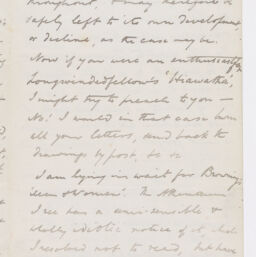 throughout, & may therefore be
safely left to its own development,
or decline, as the case may be.
Now if you were an enthusiast for
Longwindedfellow's 'Hiawatha',
I might try to preach to you —
No! I would in that case burn
all your letters, send back the
drawings by post, &c &c
I am lying in wait for Browning's
'Men & Women'. The Athenaeum
I see has a semi-sensible &
wholly idiotic notice of it, which
I resolved not to read, but have